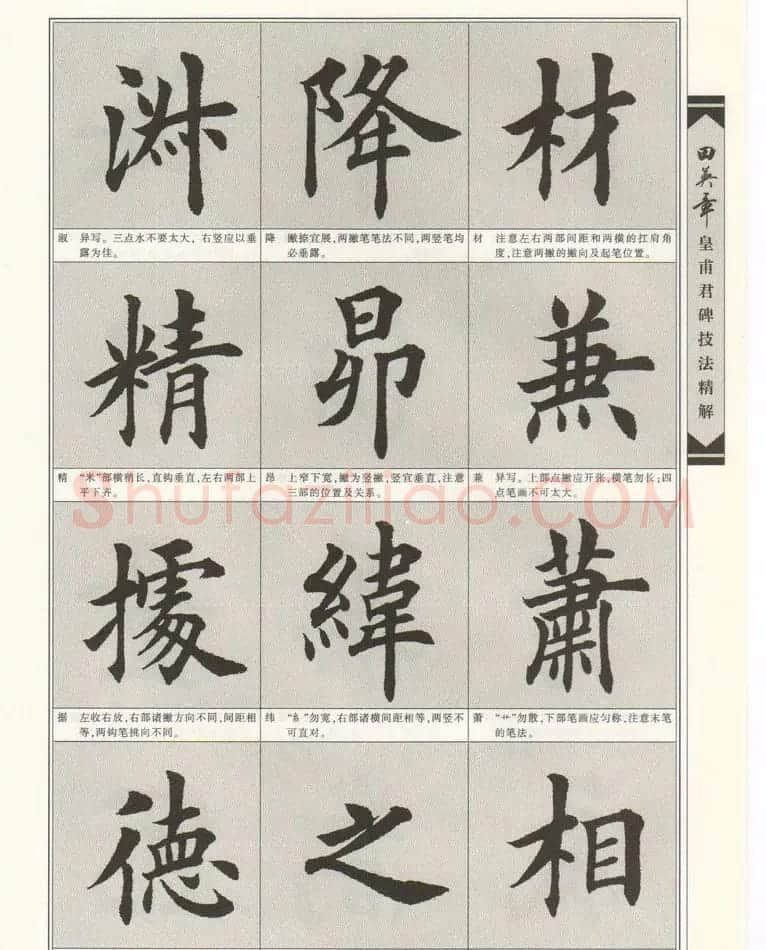 淑 降 材
淑 异写。三点水不要太大,右竖应以垂
露为佳。
降 撇捺宜展,两撇笔笔法不同,两竖笔均
必垂露。
材 注意左右两部间距和两横的扛肩角
度,注意两撇的撇向及起笔位置。
精 昴 兼
精 “米”部横稍长,直钩垂直,左右两部上
平下齐。
昂 上窄下宽,撇为竖撇,竖宜垂直,注意
三部的位置及关系。
兼 异写。上部点撇应开张,横笔勿长;四
点笔画不可太大。
據 緯 蕭
据 左收右放,右部诸撇方向不同,间距相
等,两钩笔挑向不同。
纬 “糹”勿宽,右部诸横间距相等,两竖不
可直对。
萧 “艹”勿散,下部笔画应匀称、注意末笔
的笔法。
德 之 相
田英章
皇甫君碑技法精解
shufaziliao.COM